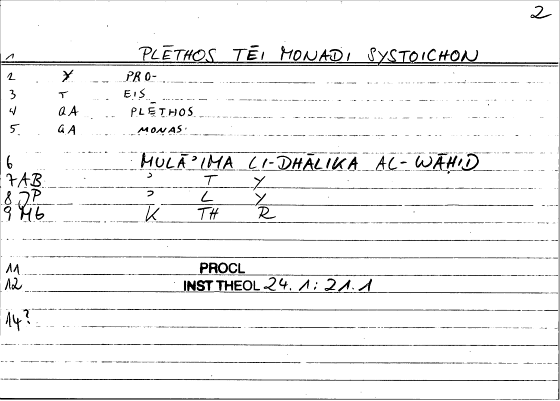 2
1 PLĒTHOS TĒI MONADI SYSTOICHON
2 Y PRO-
3 T EIS
4 QA PLĒTHOS
5. QA MONAS.
6 MULĀʾIMA LI-DHĀLIKA AL-WĀḤID
7 AB ʾ T Y
8 JP ʾ L Y
9 Mb K TH R
11 PROCL
12 INST THEOL 24. 1: 21.1
14?